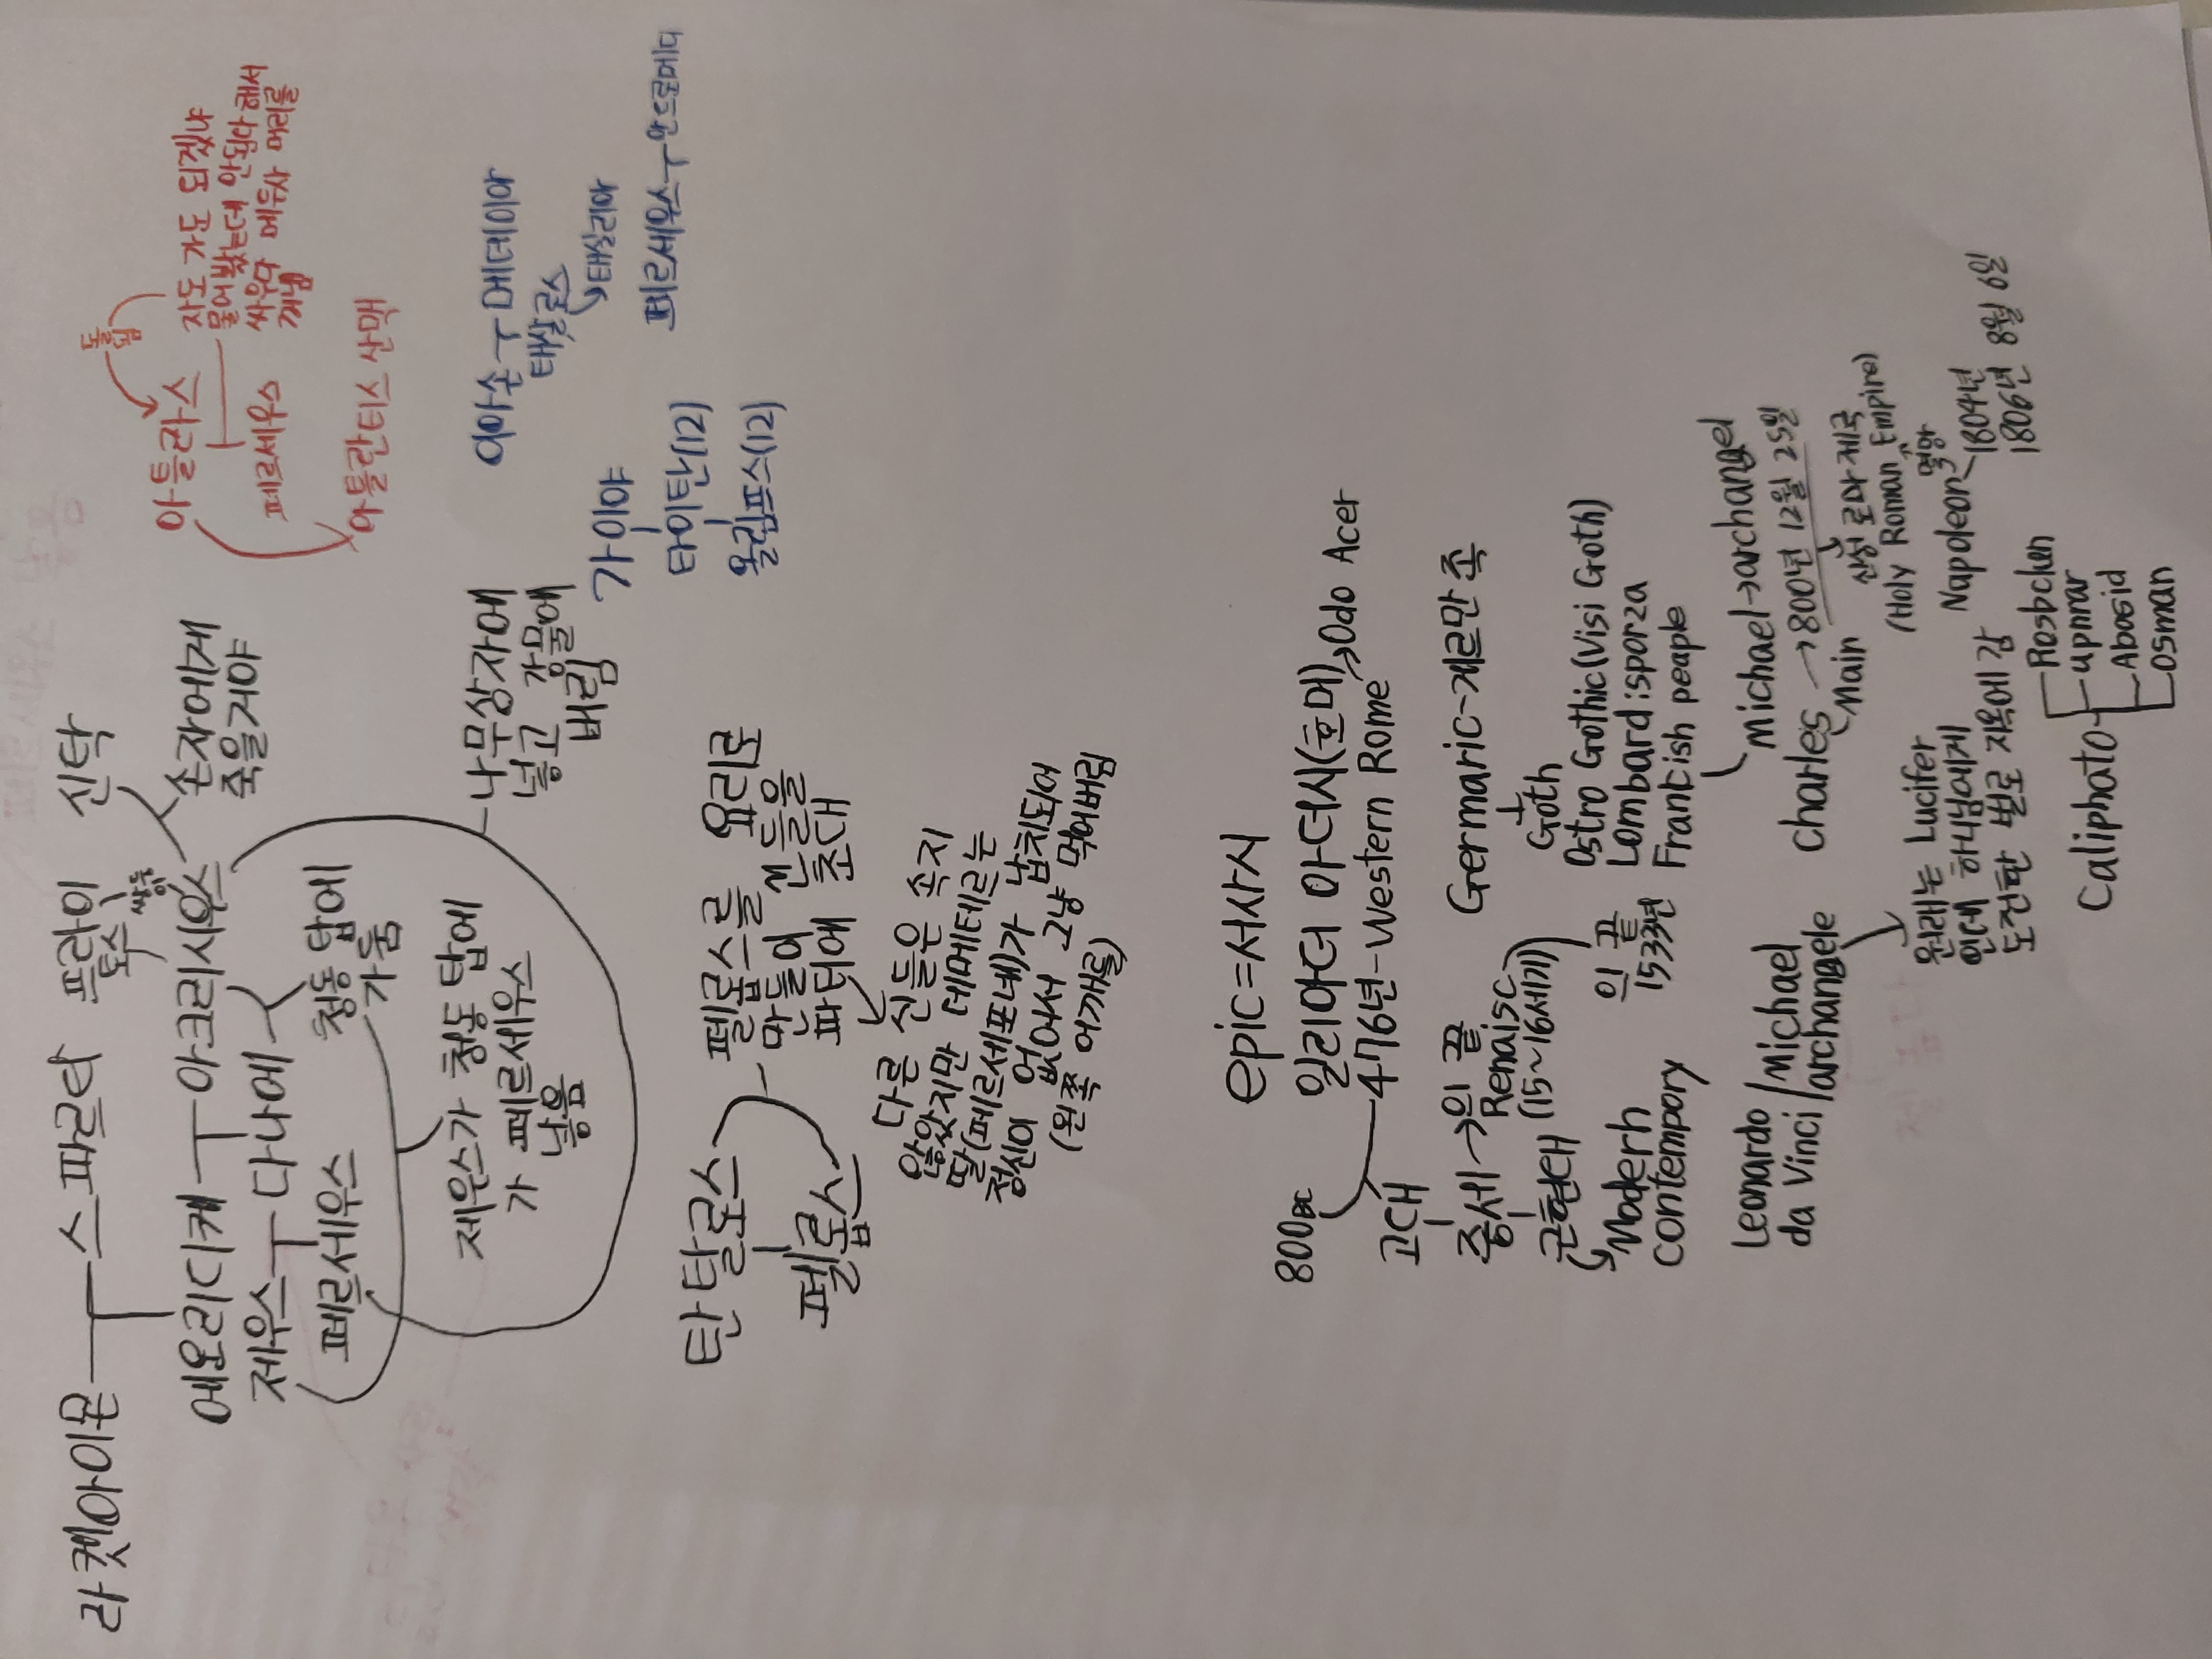 라켓아이몬 스파르타 프라이토스 신탁
쌍둥이
에요리디케 아크리시우스 손자에게
죽을거야
제우스 다나에 청동 탑에
가둠
페르세우스
제우스가 청동 탑에
가 페르세우스
낳음
나무상자에
넣고 강물에
버림
아틀라스
돌됨
자도 가도 되겠냐
물어봤는데 안된다해서
싸우다 메두사 머리를
꺼냄
페르세우스
아틀란티스 산맥
이아손 메데이아
태살로스
태살리아
가이아
타이탄(12)
올림프스(12)
페르세우스 안드로메다
탄탈로스
펠롭스
펠롭스를 요리로
만들어 신들을
파티에 초대
다른 신들은 속지
않았지만 데메테르는
딸(페르세포네)가 납치되어
정신이 없어서 그냥 먹어버림
(왼쪽 어개를)
epic=서사시
800BC 일리아더 아더시(호머)
476년-Western Rome
Odo Acer
고대
중세→의 끝
Renaisc
근현대 (15~16세기)
Modern
contempory
의 끝
1533년
Germaric-게르만 족
Goth
Ostro Gothic(Visi Goth)
Lombard isporza
Frantish peaple
Michael→archangel
Charles→800년 12월 25일
Main
신성 로마 제국
(Holy Roman Empire)
멸망
Napoleon 1804년
1806년 8월 6일
Leonardo
da Vinci
Michael
archangele
원래는 Lucifer
인데 하나님에게
도전한 벌로 지옥에 감
Caliphato
Rosbchen
upmar
Abosid
Osman